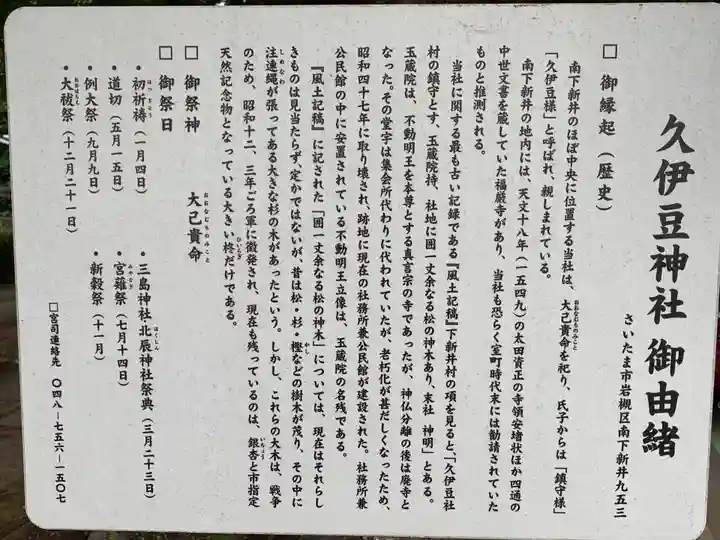 久伊豆神社 御由緒
さいたま市岩槻区南下新井九五三
□ 御縁起(歴史)
南下新井のほぼ中央に位置する当社は、大己貴命を祀り、氏子からは「鎮守様」
おおなむちのみこと
「久伊豆様」と呼ばれ、親しまれている。
南下新井の地内には、天文十八年(一五四九)の太田資正の寺領安堵状ほか四通の
中世文書を蔵していた福厳寺があり、当社も恐らく室町時代末には勧請されていた
ものと推測される。
当社に関する最も古い記録である『風土記稿』下新井村の項を見ると、「久伊豆社
村の鎮守とす、玉蔵院持、社地に囲一丈余なる松の神木あり、末社 神明」とある。
玉蔵院は、不動明王を本尊とする真言宗の寺であったが、神仏分離の後は廃寺と
なった。その堂宇は集会所代わりに代われていたが、老朽化が甚だしくなったため、
昭和四十七年に取り壊され、跡地に現在の社務所兼公民館が建設された。社務所兼
公民館の中に安置されている不動明王立像は、玉蔵院の名残である。
『風土記稿』に記された「囲一丈余なる松の神木」については、現在はそれらし
きものは見当たらず、定かではないが、昔は松・杉・樫などの樹木が茂り、その中に
かし
注連縄が張ってある大きな杉の木があったという。しかし、これらの大木は、戦争
しめなわ
のため、昭和十二、三年ごろ軍に徴発され、現在も残っているのは、銀杏と市指定
いちょう
天然記念物となっている大きい柊だけである。
ひいらぎ
□ 御祭神 大己貴命
おおなむちのみこと
□ 御祭日
・初祈祷(一月四日)
はつきとう
・三島神社北辰神社祭典(三月二十三日)
ほくしん
・道切(五月一五日)
・宮薙祭(七月十四日)
みやなぎ
・例大祭(九月九日)
・新穀祭(十一月)
・大祓祭(十二月二十一日)
おおはらえ
□宮司連絡先 〇四八-七五六-一五〇七